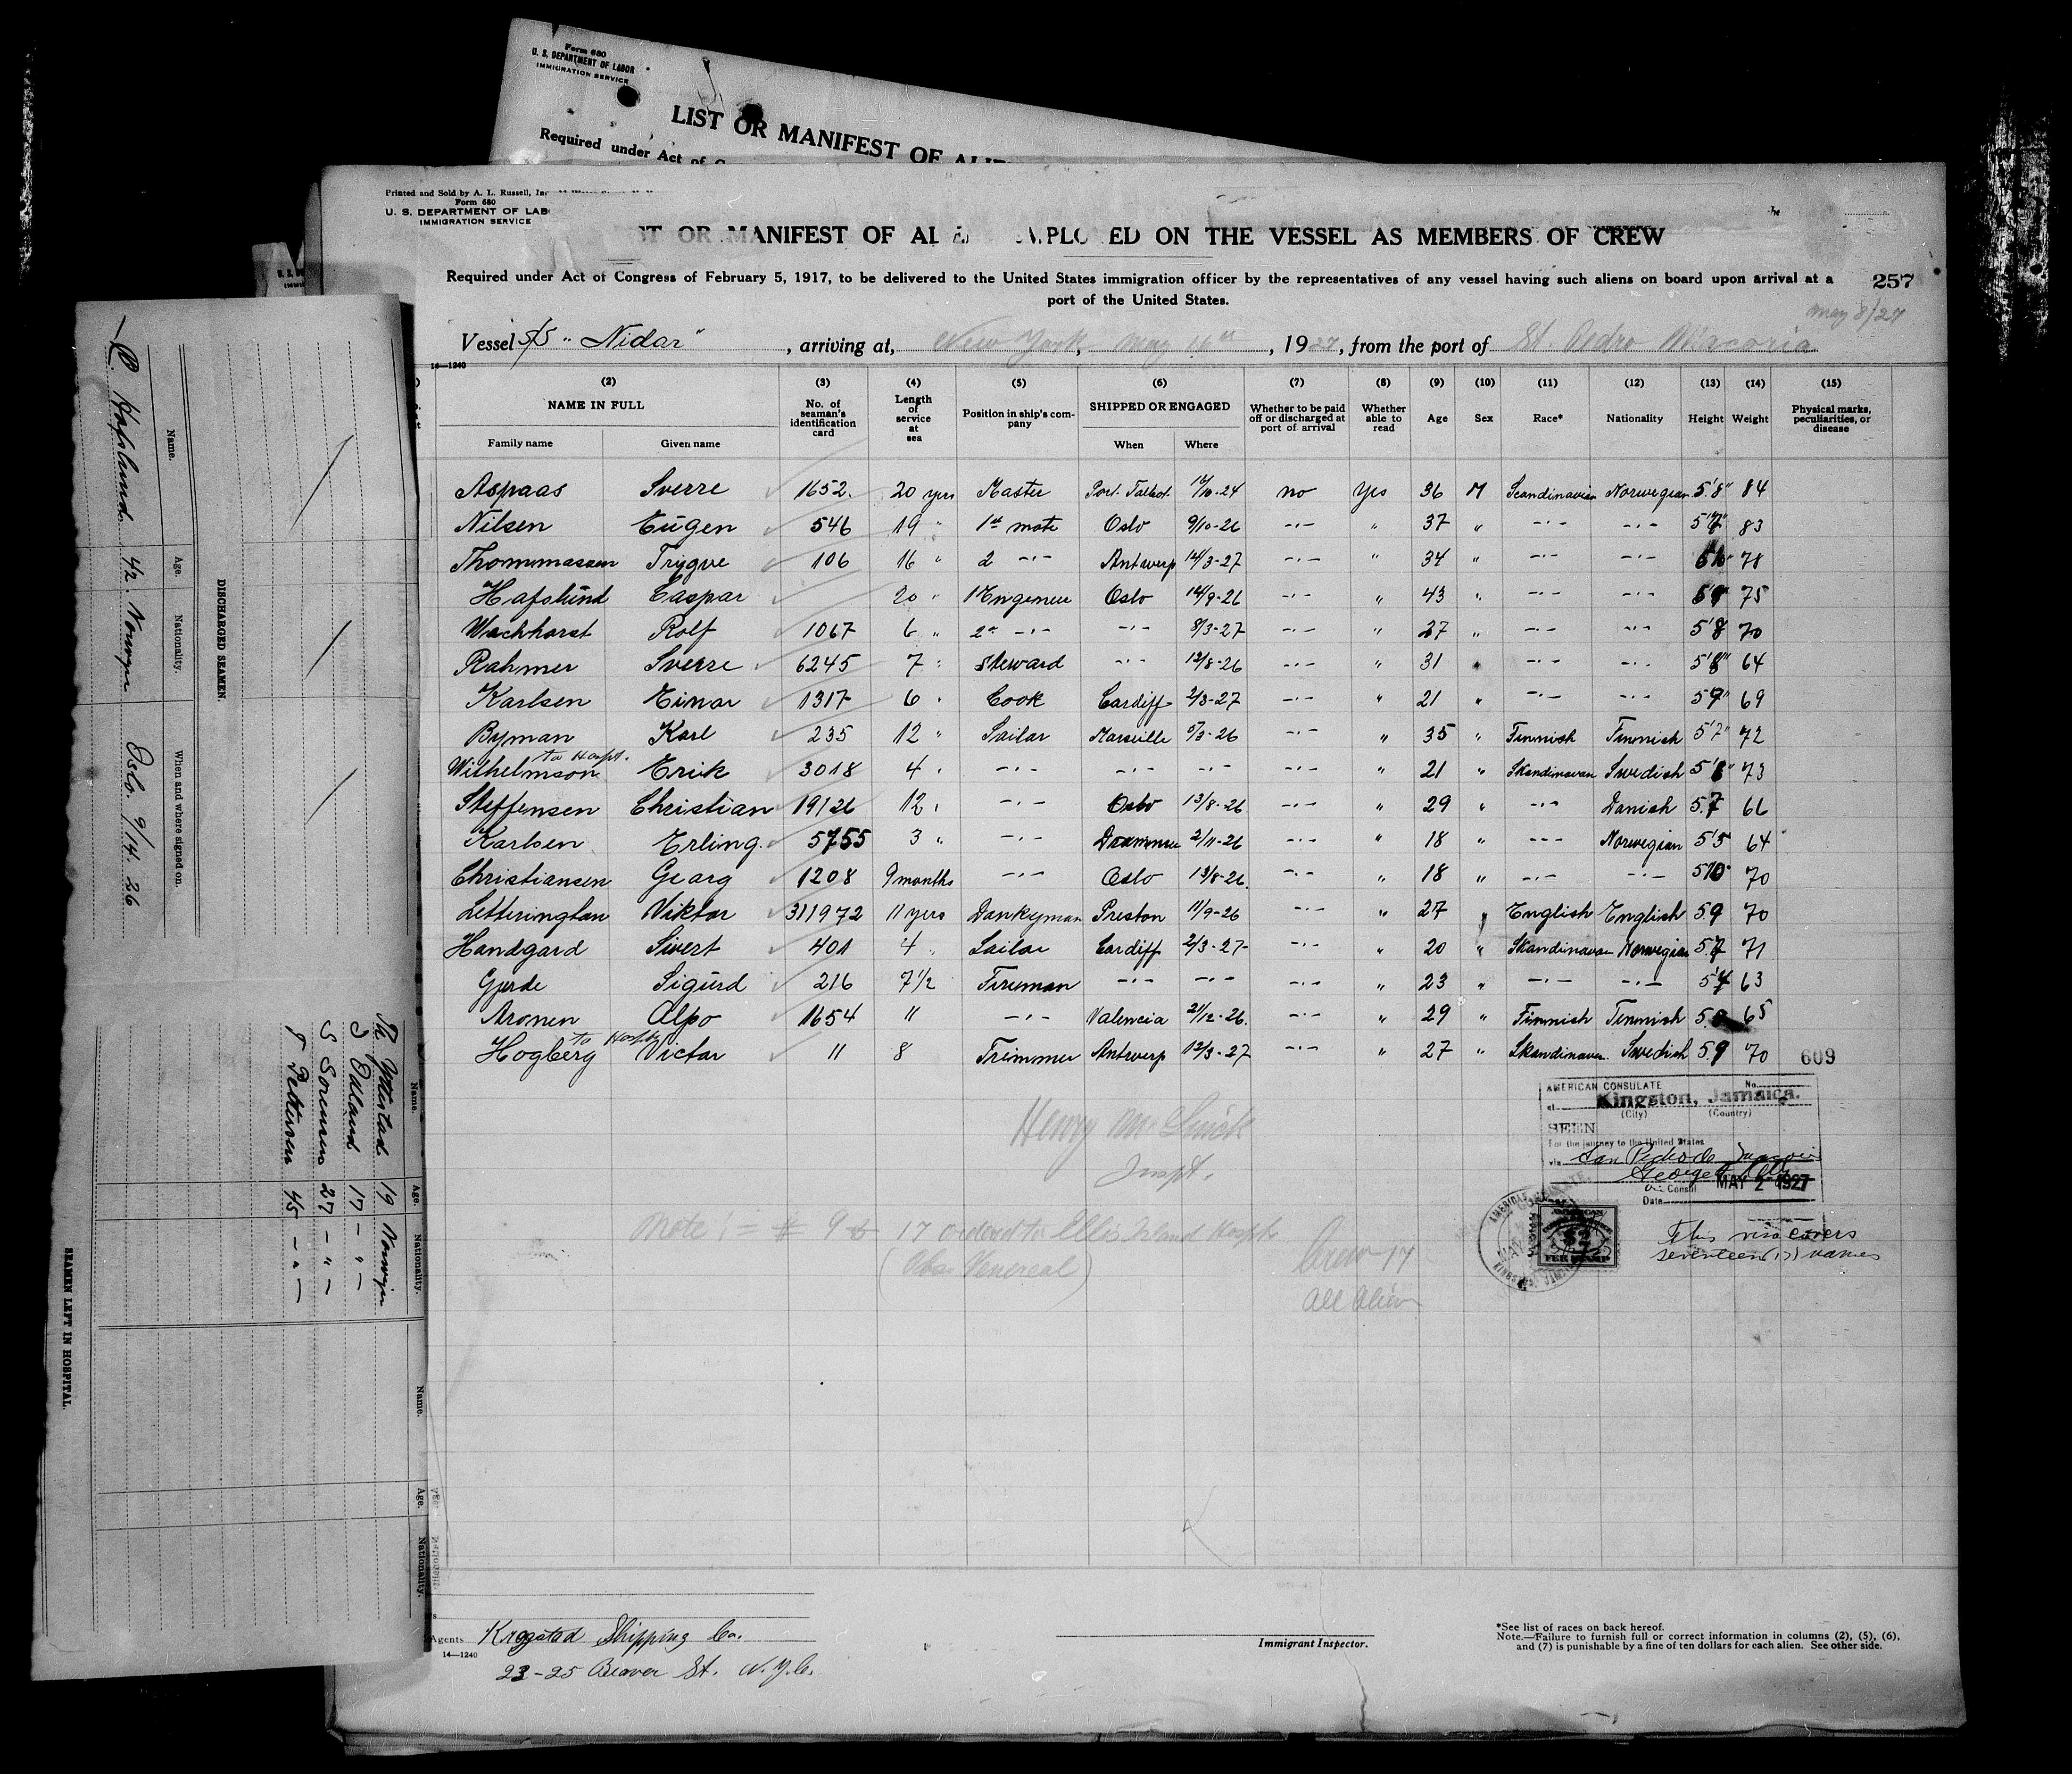 Form 680
U. S. DEPARTMENT OF LABOR
IMMIGRATION SERVICE
LIST OR MANIFEST OF ALIE
Required under Act of C
Printed and Sold by A. L. Russell, Inc
Form 680
U. S. DEPARTMENT OF LAB
IMMIGRATION SERVICE
ST OR MANIFEST OF AL MPLO ED ON THE VESSEL AS MEMBERS OF CREW
Required under Act of Congress of February 5, 1917, to be delivered to the United States immigration officer by the representatives of any vessel having such aliens on board upon arrival at a
port of the United States.
257
May 8/27
Vessel S/S "Nidar", arriving at, New York, May 14th, 1927, from the port of St. Pedro Macoris
14—1240
(2) (3) (4) (5) (6) (7) (8) (9) (10) (11) (12) (13) (14) (15)
NAME IN FULL
Family name Given name
No. of seaman's identification card
Length of service at sea
Position in ship's company
SHIPPED OR ENGAGED
When Where
Whether to be paid off or discharged at port of arrival
Whether able to read
Age
Sex
Race*
Nationality
Height
Weight
Physical marks, peculiarities, or disease
Aspaas Sverre 1652 20 yrs Master Port Talbot 16/10-24 no yes 36 M Scandinavian Norwegian 5'8" 84
Nilsen Eugen 546 19 " 1st mate Oslo 9/10-26 -"- " 37 " -"- -"- 5'7" 83
Thommassen Trygve 106 16 " 2 -"- Antwerp 14/3-27 -"- " 34 " -"- -"- 78
Hafslund Caspar 20 " 1 Engeneer Oslo 14/9-26 -"- " 43 " -"- -"- 75
Wachhorst Rolf 1067 6 " 2n -"- -"- 8/3-27 -"- " 27 " -"- -"- 5'8 70
Rahmer Sverre 6245 7 " Steward -"- 12/8-26 -"- " 31 " -"- -"- 5'8" 64
Karlsen Einar 1317 6 " Cook Cardiff 2/3-27 -"- " 21 " -"- -"- 5'7" 69
Byman Karl 235 12 " Sailar Marseille 5/3-26 -"- " 35 " Finnish Finnish 5'7" 72
to Hospt.
Wilhelmson Erik 3018 4 " -"- -"- -"- -"- " 21 " Skandinavan Swedish 73
Steffensen Christian 19126 12 " -"- Oslo 13/8-26 -"- " 29 " -"- Danish 5.7 66
Karlsen Erling 5755 3 " -"- Drammen 2/11-26 -"- " 18 " -"- Norwegian 5'5 64
Christiansen Georg 1208 9 months -"- Oslo 13/8-26 -"- " 18 " -"- -"- 5'10 70
Letterington Viktor 311972 11 yers Donkyman Preston 11/9-26 -"- " 27 " English English 5.9 70
Handgard Sivert 401 4 " Sailar Cardiff 2/3-27 -"- " 20 " Skandinavan Norwegian 5.7 71
Gjerde Sigurd 216 7½ Fireman -"- -"- -"- " 23 " -"- -"- 5'4 63
Aronen Alpo 1654 " -"- Valencia 21/12-26 -"- " 29 " Finnish Finnish 65
to Hospt
Hogberg Victor 11 8 Trimmer Antwerp 12/3-27 -"- " 27 " Skandinavan Swedish 5.9 70
609
AMERICAN CONSULATE No.
at Kingston, Jamaica.
(City) (Country)
SEEN
For the journey to the United States
via San Pedro de Macoris
Vice Consul
MAY 2 - 1927
Date
This visa covers
seventeen (17) names
Henry
Inspt.
Note: = # 9 & 17 ordered to Ellis Island Hospt
Venereal)
Crew 17
All Alien
Agents Krogstad Shipping Co.
14—1240
23-25 Beaver St. N.Y.C.
Immigrant Inspector.
*See list of races on back hereof.
Note.—Failure to furnish full or correct information in columns (2), (5), (6),
and (7) is punishable by a fine of ten dollars for each alien. See other side.
DISCHARGED SEAMEN.
Name. Age. Nationality. When and where signed on.
C. Hafslund. 42. Norwegn Oslo. 9/14. 26
SEAMEN LEFT IN HOSPITAL.
Name. Age. Nationality. Name. Age. Nationality.
Ytterstad 19 Norwegn
Odland 17 - " -
S Sorensen 27 - " -
Pettersen 45 - " -